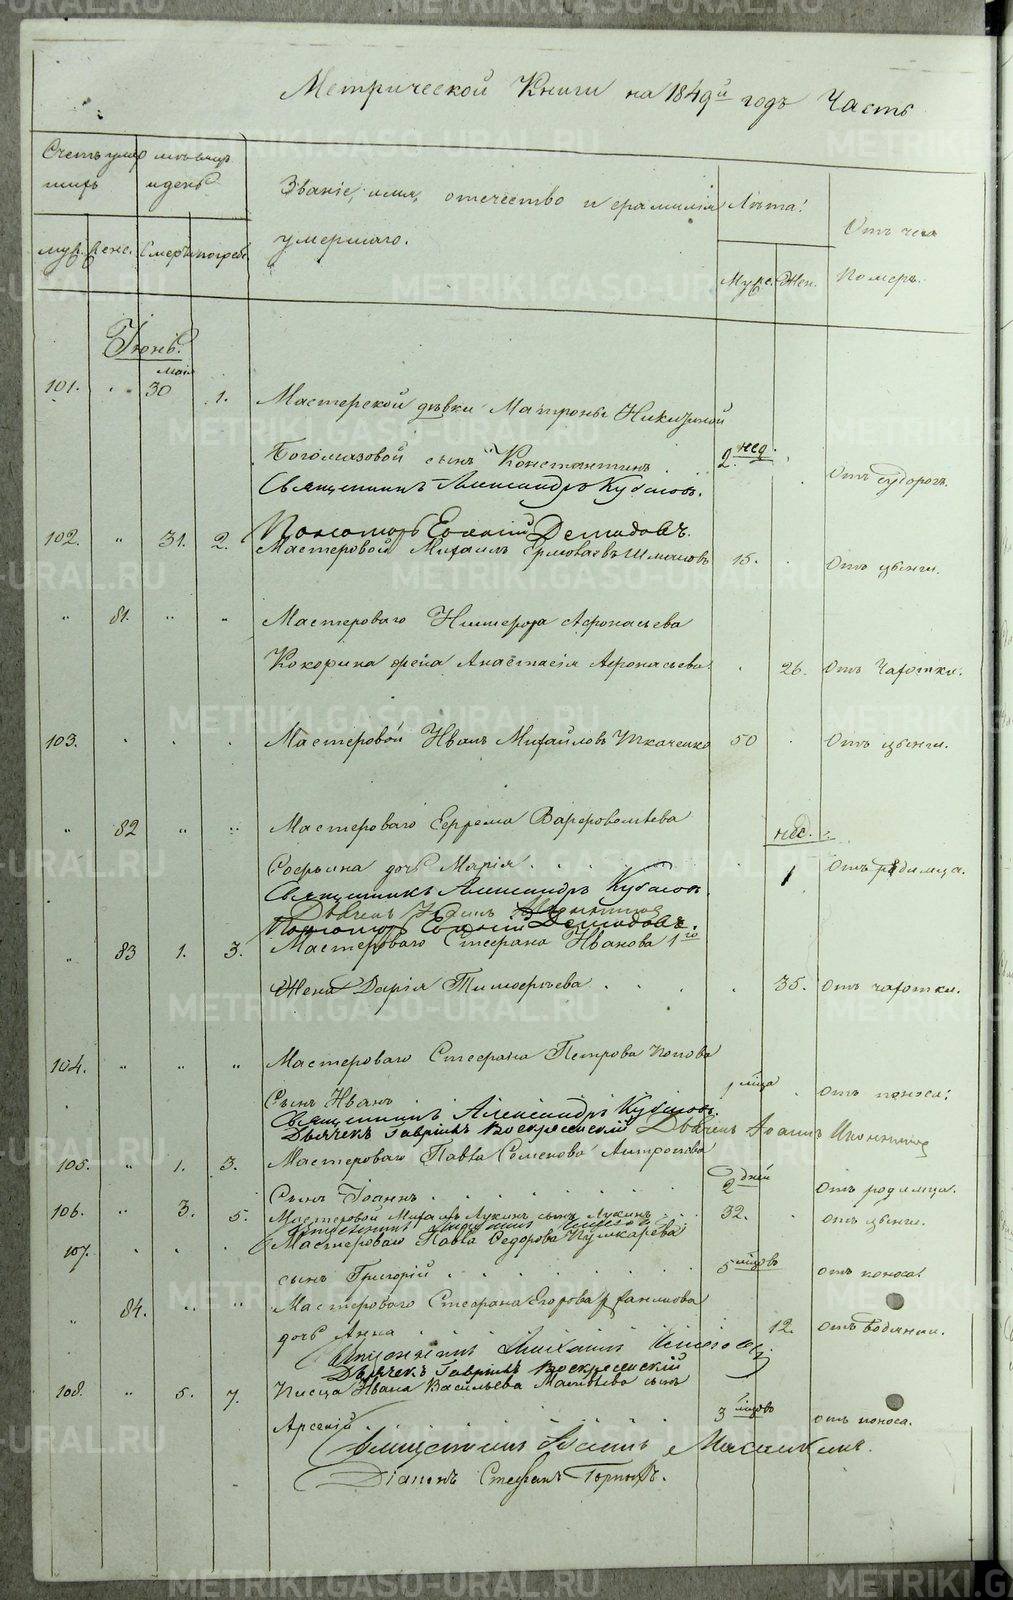 Метрической Книги на 1849й годъ Часть
Счетъ умер
шихъ
мѣсяцъ
и день
Званіе, имя, отечество и фамилія
умершаго.
Лѣта:
Отъ чего
померъ.
муж. женс. Смерти погреб.
Муже. Жен.
Іюнь.
мая
101. 30 1. Мастерской дѣвки Матроны Никитиной
Богомазовой сынъ Константинъ 2. нед. Отъ судорогъ.
Священникъ Александръ Кубасовъ.
Пономарь Демидовъ.
102. " 31. 2. Мастеровой Михаилъ 15. Отъ цынги.
" 81. " " Мастероваго Никифора Афонасьева
Кокорина жена Анастасія Афонасьева 26. Отъ Чахотки.
103. Мастеровой Иванъ Михайловъ Ткаченко 50 Отъ цынги.
" 82 " " Мастероваго Ефрема Варфоломѣева
нед.
дочь Марія 1 Отъ родимца.
Священникъ Александръ Кубасовъ.
Пономарь Демидовъ.
" 83 1. 3. Мастероваго Стефана Иванова 1го
Жена Дарія Тимофѣева 35. Отъ чахотки.
104. " " " Мастероваго Стефана Петрова Попова
Сынъ Иванъ 1 мѣца отъ поноса.
Священникъ Александръ Кубасовъ.
Дьячекъ Гавріилъ Воскресенскій Дьячекъ Іоаннъ
105. " 1. 3. Мастероваго Павла Семенова Антропова
Сынъ Іоаннъ 2 дней Отъ родимца.
106. " 3. 5. Мастеровой Лукинъ 32. отъ цынги.
Священникъ
107. Мастероваго Павла Федорова Пушкарева
сынъ Григорій 5 мѣцовъ отъ поноса.
" 84. " " Мастероваго Стефана Егорова
дочь Анна 12. отъ водянки.
Священникъ
Дьячекъ Гавріилъ Воскресенскій
108. " 5. 7. Писца Ивана Васильева Матвѣева сынъ
Арсеній 3 мѣцовъ отъ поноса.
Священникъ
Діаконъ Стефанъ
METRIKI.GASO-URAL.RU